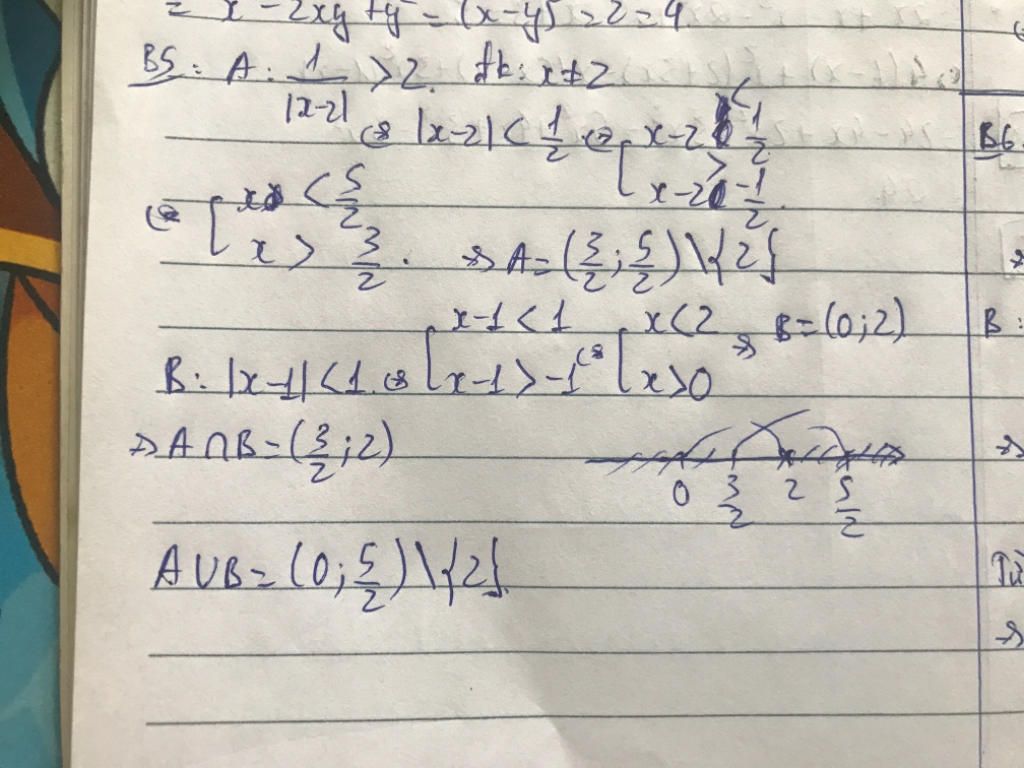 = x² - 2xy + y² = (x-y)² = 2 = 4
B5: A: 1/|x-2| > 2. đk: x ≠ 2
⇔ |x-2| < 1/2 ⇔ [ x-2 < 1/2
x-2 > -1/2.
⇔ [ x < 5/2
x > 3/2. ⇒ A = (3/2; 5/2) \ {2}
B: |x-1| < 1. ⇔ [ x-1 < 1
x-1 > -1 ⇔ [ x < 2
x > 0 ⇒ B = (0; 2)
⇒ A ∩ B = (3/2; 2)
0 3/2 2 5/2
A ∪ B = (0; 5/2) \ {2}.
B6.
B: